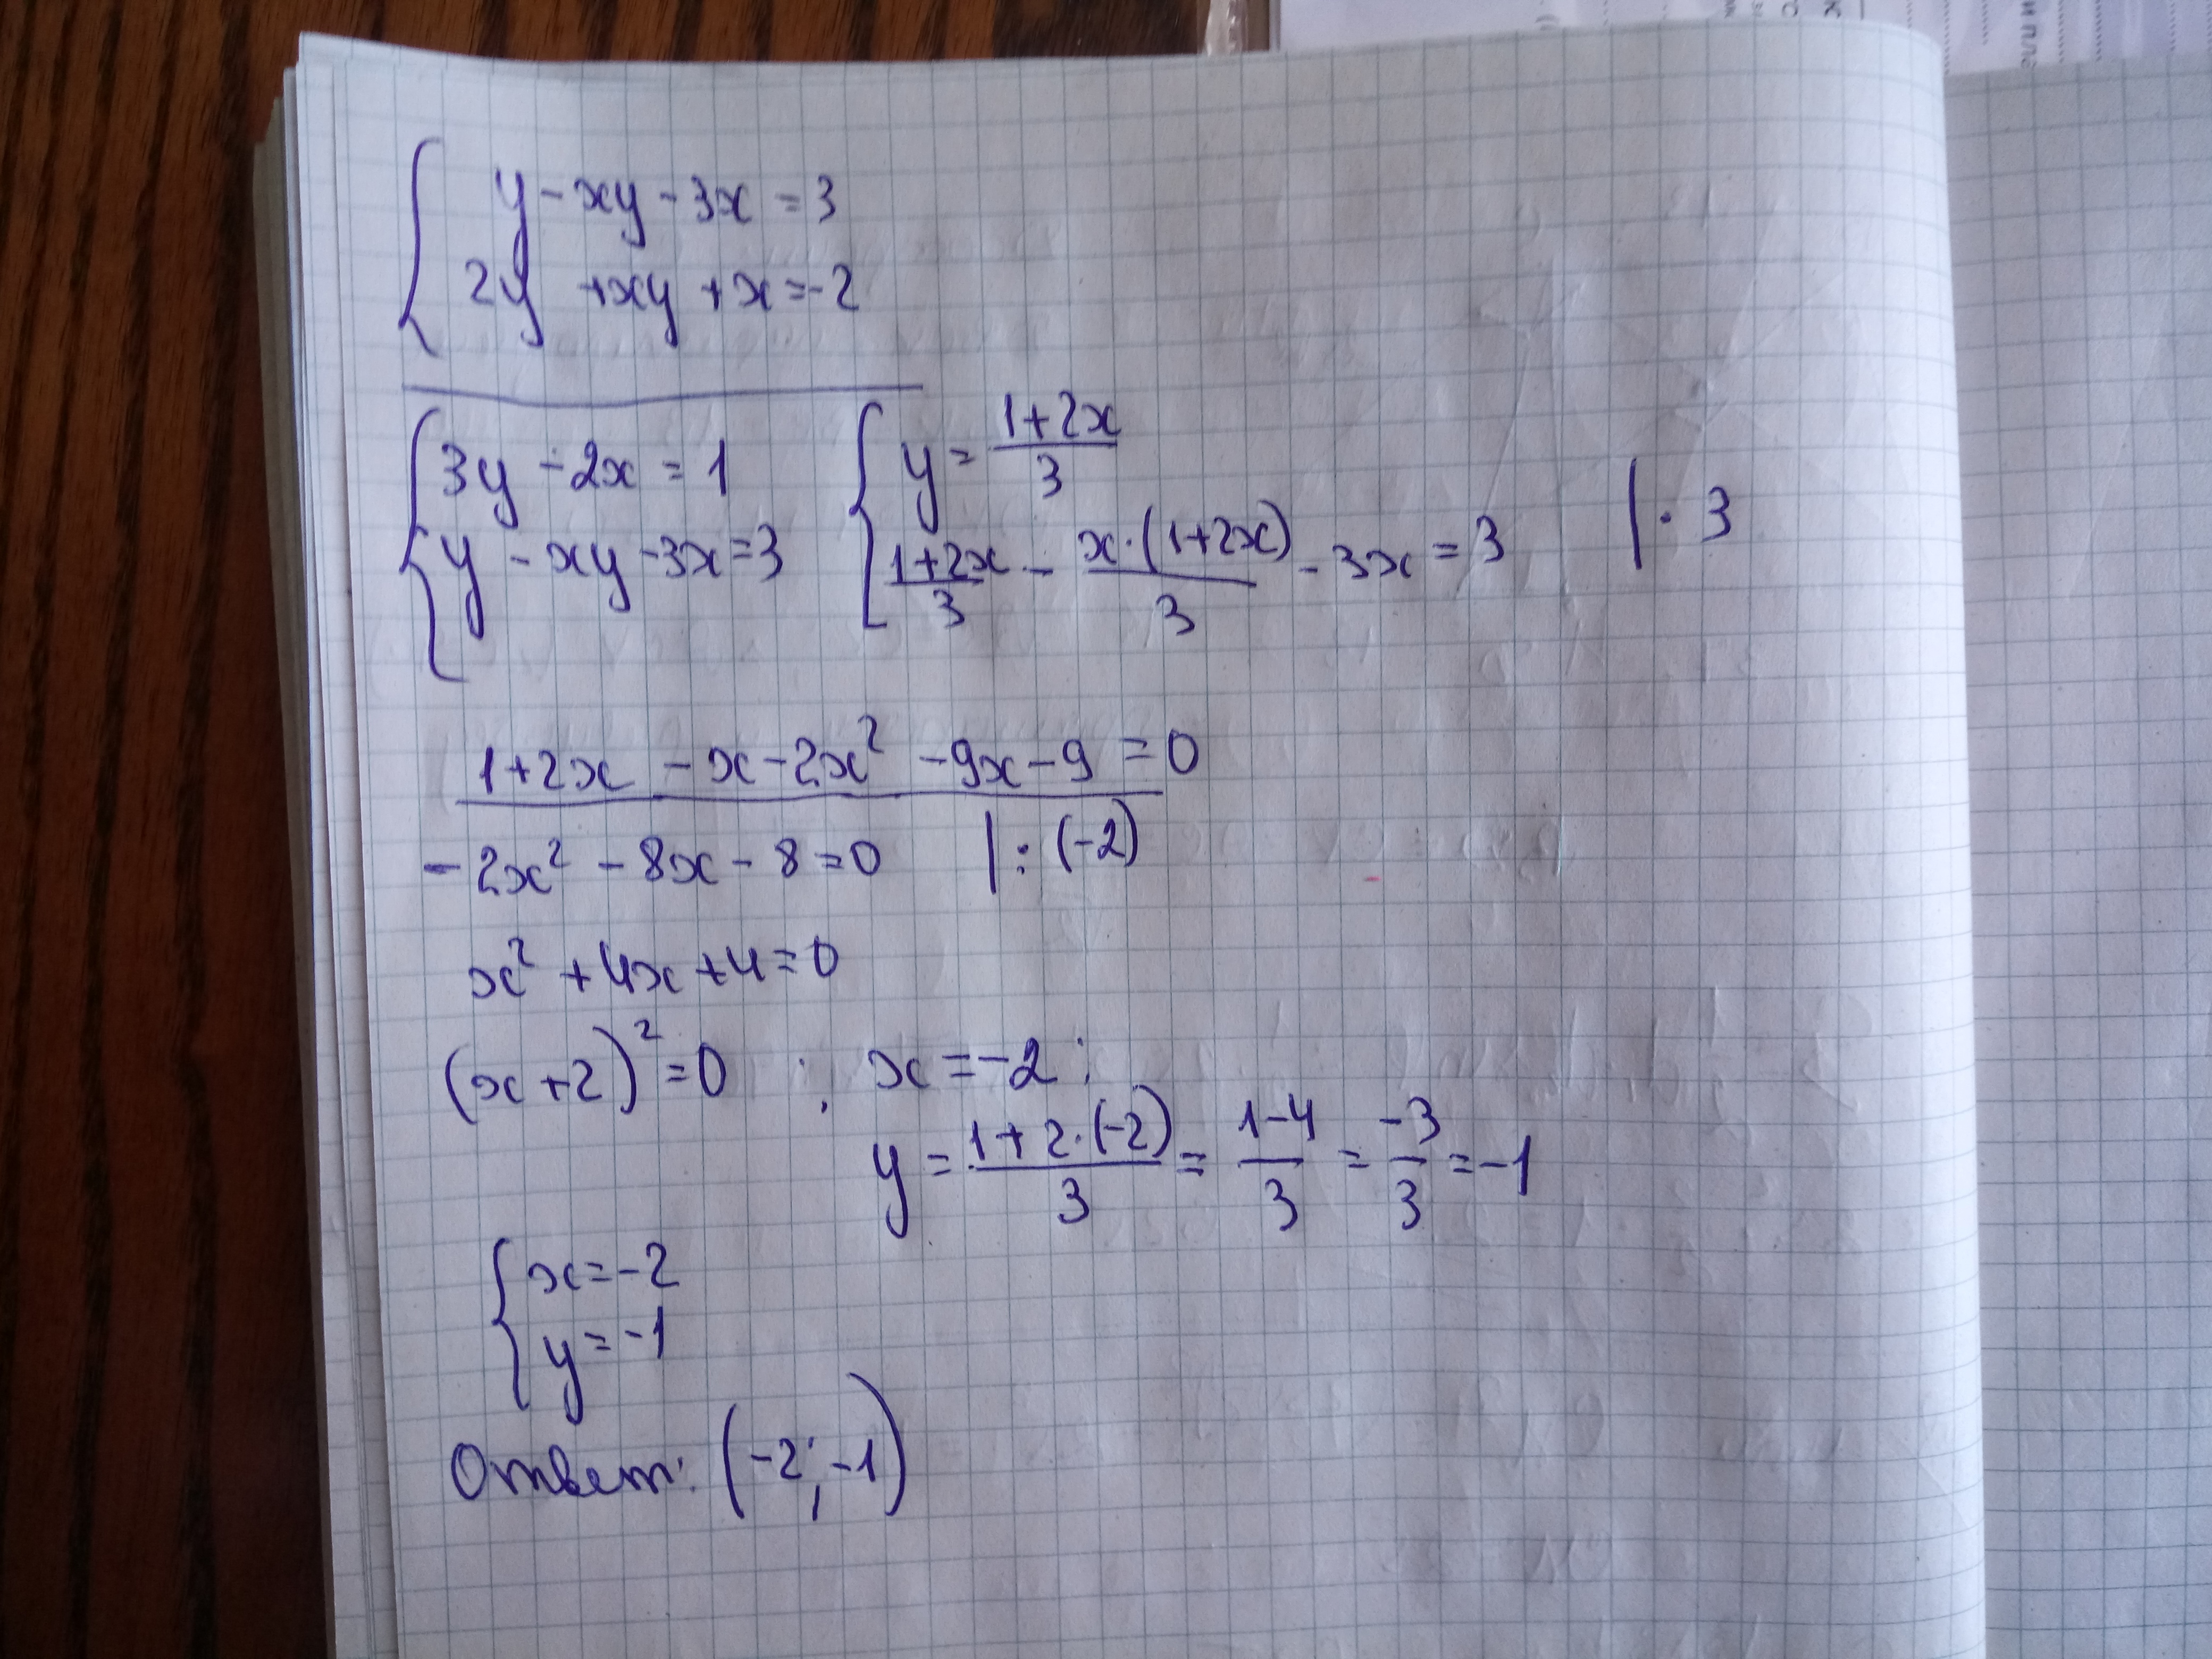 y - xy - 3x = 3
2y + xy + x = -2
3y - 2x = 1
y - xy - 3x = 3
y = (1+2x)/3
(1+2x)/3 - x·(1+2x)/3 - 3x = 3 | · 3
1+2x - x - 2x² - 9x - 9 = 0
-2x² - 8x - 8 = 0 | : (-2)
x² + 4x + 4 = 0
(x+2)² = 0 ; x = -2 ;
y = (1+2·(-2))/3 = (1-4)/3 = -3/3 = -1
x = -2
y = -1
Ответ: (-2; -1)